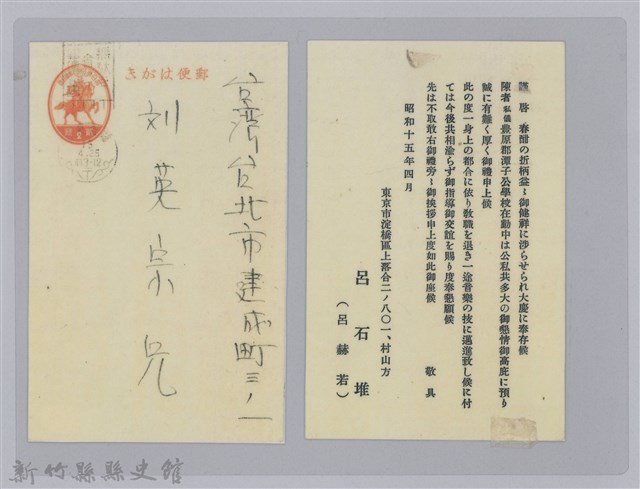 郵便はがき
台湾台北市建成町三ノ一
刘英宗兄
謹啓 春酣の折柄益々御健祥に渉らせられ大慶に奉存候
陳者私儀豊原郡潭子公學校在勤中は公私共多大の御懇情御高庇に預り
誠に有難く厚く御禮申上候
此の度一身上の都合に依り敎職を退き一途音樂の技に邁進致し候に付
ては今後共相渝らず御指導御交誼を賜り度奉懇願候
先は不取敢右御禮旁々御挨拶申上度如此御座候
敬具
昭和十五年四月
東京市淀橋區上落合二ノ八〇一、村山方
呂石堆
(呂赫若)
新竹縣縣史館